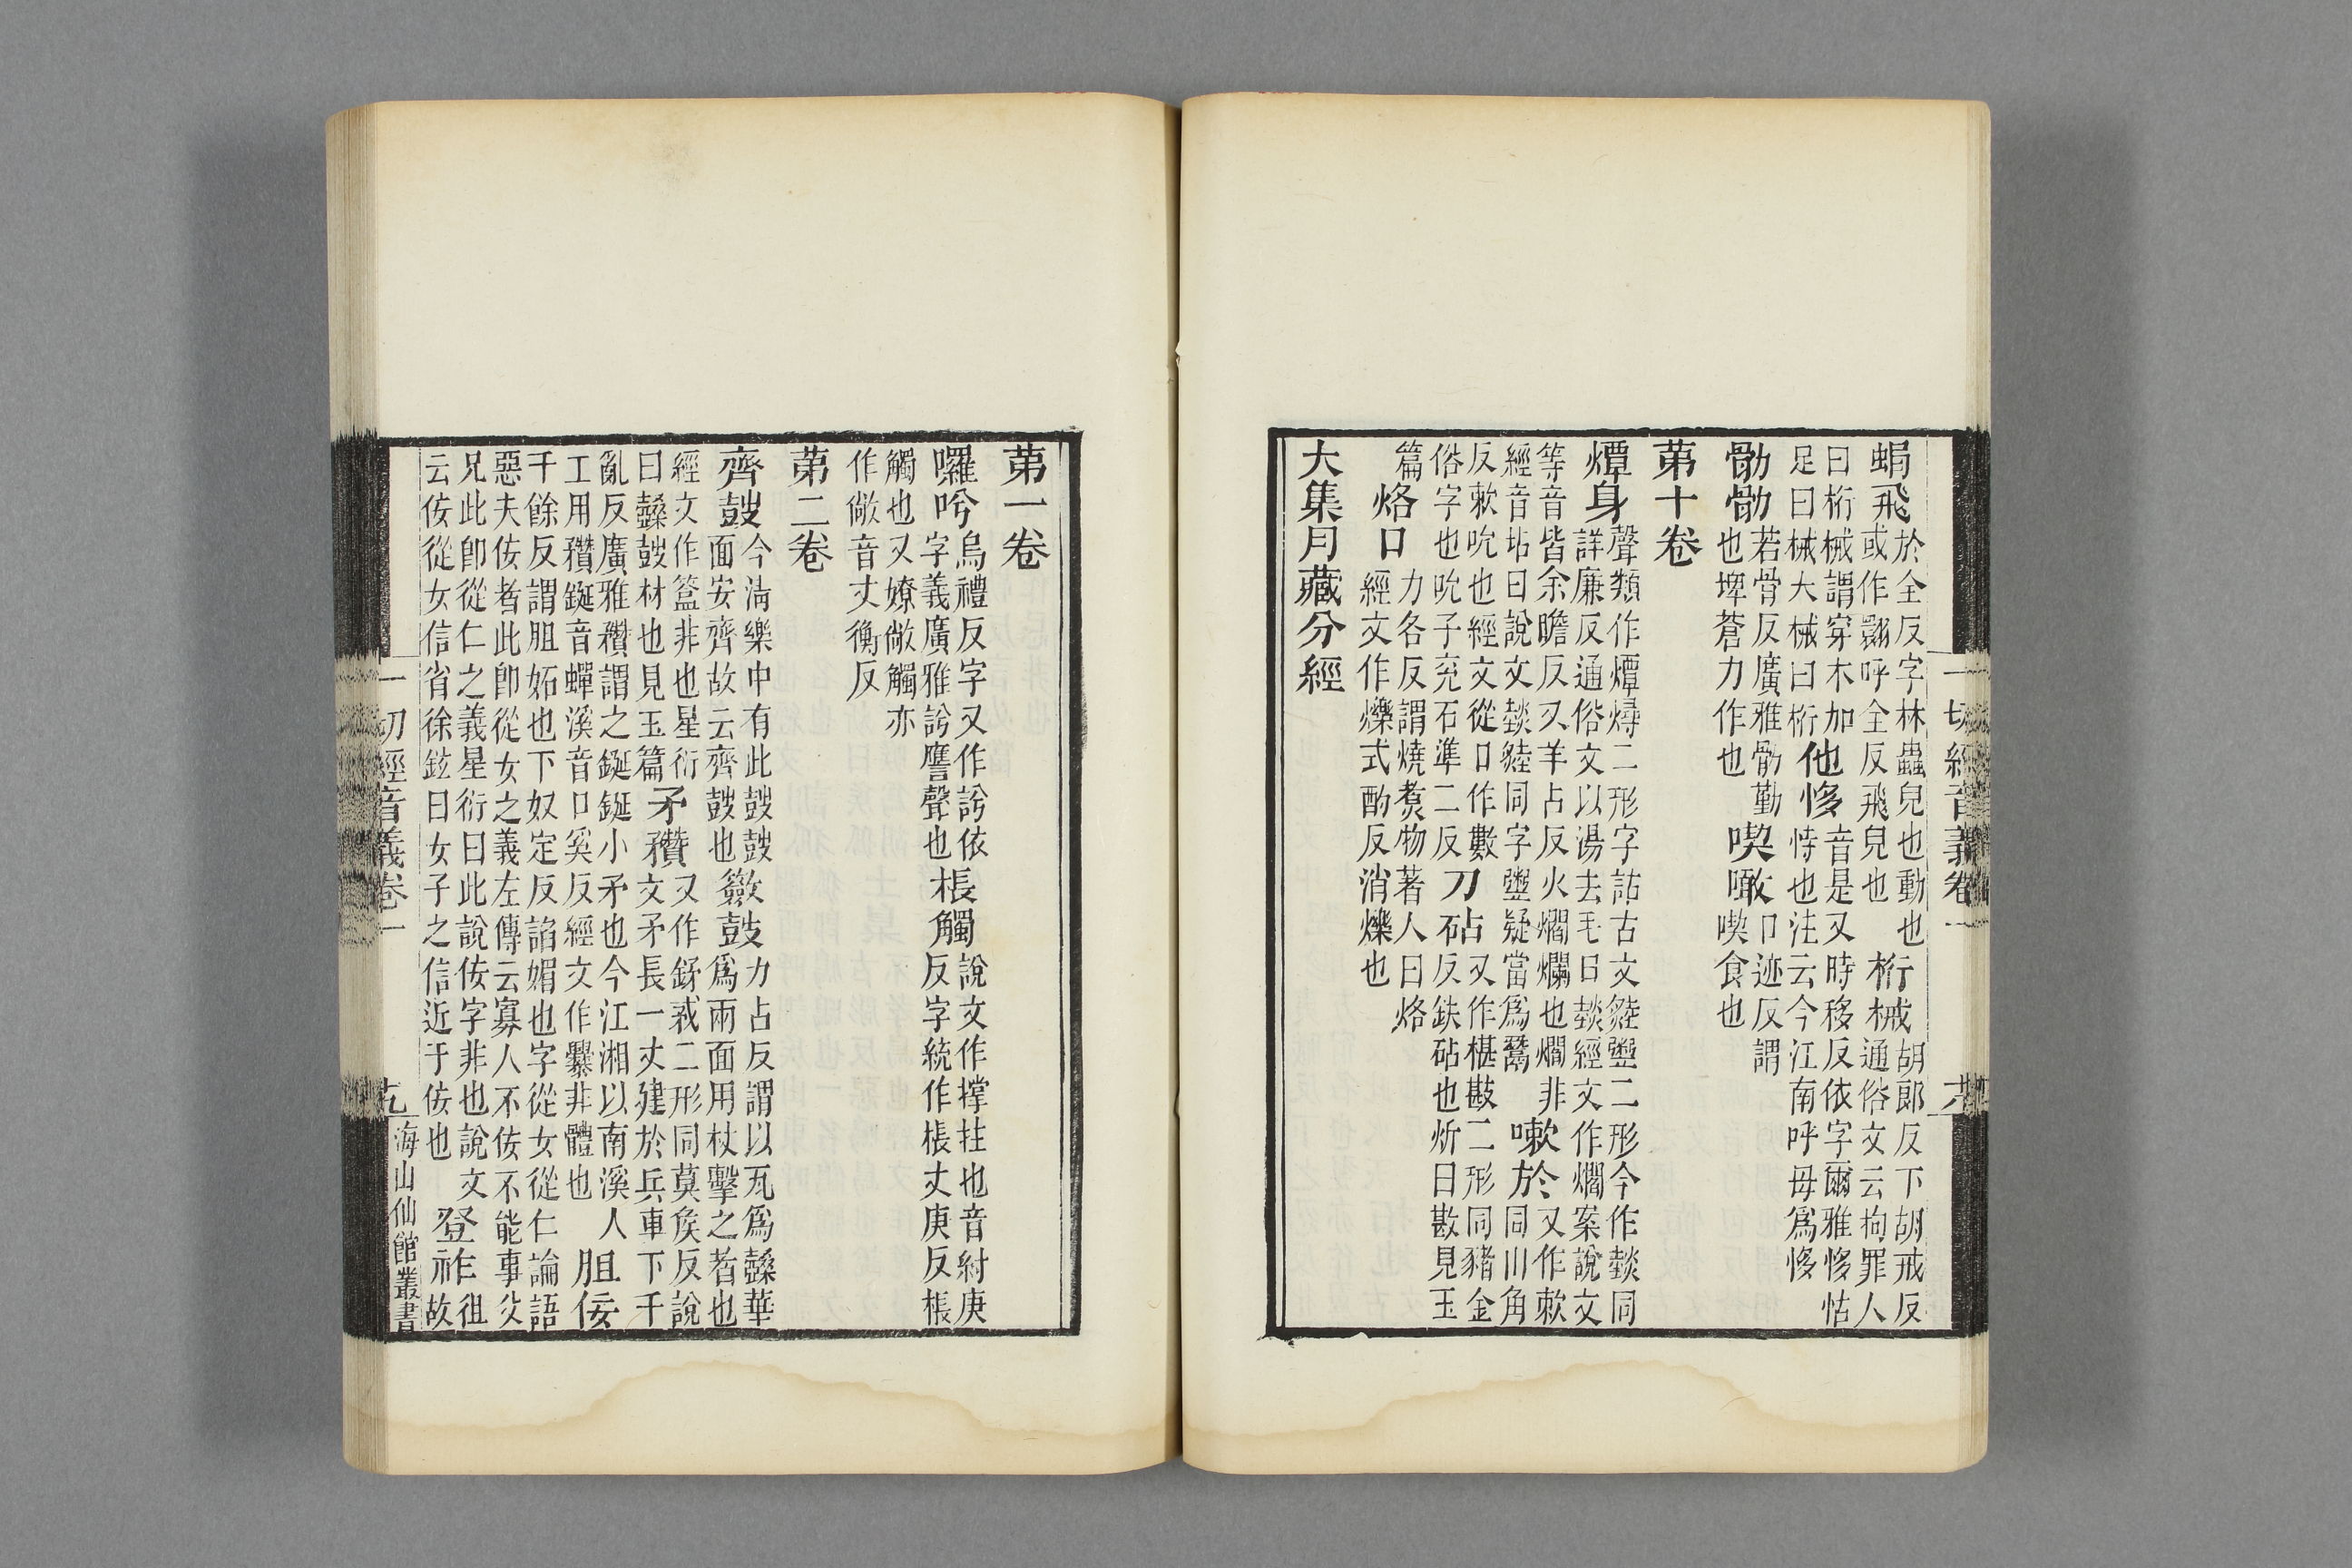 蜎飛於全反字林蟲皃也動也
或作𧕎呼全反飛皃也
桁械胡郎反下胡戒反
通俗文云拘罪人
曰桁械謂穿木加
足曰械大械曰桁
他恀音是又時移反依字爾雅恀怙
恃也注云今江南呼母為恀
骲骲若骨反廣雅骲勤
也埤蒼力作也
喫噉口迹反謂
喫食也
第十卷
燂身聲類作燂燖二形字詁古文
詳廉反通俗文以湯去毛曰燅經文作爓案說文
等音皆余瞻反又羊占反火爓爛也爓非
嗽於又作欶
同山角
反欶吮也經文從口作數
俗字也吮子兗石準二反
刀砧又作椹㪛二形同豬金
反鈇砧也炘曰㪛見玉
篇
烙口力各反謂燒𤋱物著人曰烙
經文作爍式酌反消爍也
大集月藏分經
一切經音義卷一
第一卷
囉吟烏禮反字又作訡依
字義廣雅訡譍聲也
棖觸說文作㲂拄也音紂庚
反字統作棖丈庚反棖
觸也又嫽敞觸亦
作敞音丈衡反
第二卷
齊鼓今淸樂中有此鼓鼓
面安齊故云齊鼓也
籢鼓力占反謂以瓦為鼗華
為兩面用杖擊之者也
經文作籃非也星衍
曰鼗鼓材也見玉篇
矛䂎又作鉾𢦧二形同莫矦反說
文矛長一丈建於兵車下千
亂反廣雅䂎謂之鋋鋋小矛也今江湘以南溪人
工用䂎鋋音蟬溪音口奚反經文作爨非體也
胆佞
千餘反謂胆妬也下奴定反諂媚也字從女從仁論語
惡夫佞者此卽從女之義左傳云寡人不佞不能事父
兄此卽從仁之義星衍曰此說佞字非也說文
云佞從女信省徐鉉曰女子之信近于佞也
登祚徂
故
一切經音義卷一
海山仙館叢書